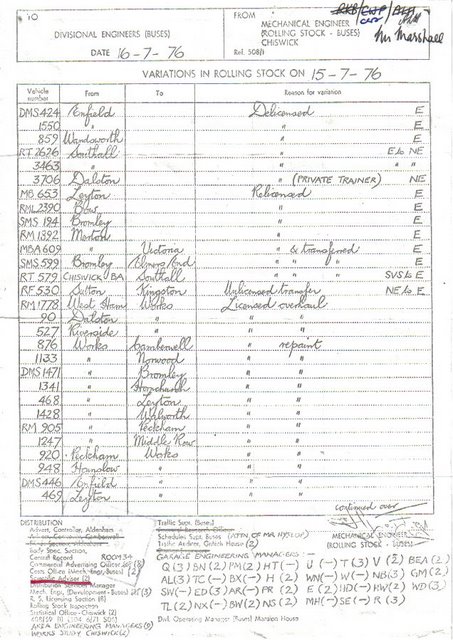 TO
DIVISIONAL ENGINEERS (BUSES)
DATE 16-7-76
FROM
MECHANICAL ENGINEER
(ROLLING STOCK - BUSES)
CHISWICK
Ref. 508/1
Mr Marshall
VARIATIONS IN ROLLING STOCK ON 15-7-76
Vehicle number From To Reason for variation
DMS 424 Enfield Delicensed E
1550 " " E
859 Wandsworth " E
RT 2626 Southall " E to NE
3463 " " " "
3706 Dalston " (PRIVATE TRAINER) NE
MB 653 Leyton Relicensed E
RML 2390 Bow " E
SMS 194 Bromley " E
RM 1392 Merton " E
MBA 609 Victoria " & transferred E
SMS 599 Bromley " " " E
RT 579 CHISWICK BA Southall " " " SVS to E
RF 530 Sutton Kingston Unlicensed transfer NE to E
RM 1778 West Ham Works Licensed overhaul
90 Dalston " " "
527 Riverside " " "
876 Works Camberwell " repaint
1133 " Norwood " "
DMS 1471 " Bromley " "
1341 " Stonebridge " "
468 " Leyton " "
1428 " Walworth " "
RM 905 " Peckham " "
1247 " Middle Row " "
920 Peckham Works " "
948 Hounslow " " "
DMS 446 Enfield " " "
469 Leyton " " "
continued over
MECHANICAL ENGINEER
(ROLLING STOCK - BUSES)
DISTRIBUTION
Advert. Controller, Aldenham
Body Spec. Section,
Central Record ROOM 34
Commercial Advertising Officer
Mech. Engr. (Development - Buses) (3)
Rolling Stock Inspection
Statistical Officer - Chiswick (2)
AREA ENGINEERING MANAGERS
WORKS STUDY CHISWICK (2)
Traffic Supt. (Buses)
Schedules Supt. Buses (ATTN OF MR HYSLOP)
GARAGE ENGINEERING MANAGERS :-
Q (3) BN (2) PM (2) HT (-) U (-) T (3) V (2) BEA (2)
AL (3) TC (-) BX (-) H (2) WN (-) W (-) NB (3) GM (2)
SW (-) ED (3) AR (-) PR (2) E (2) HD (-) HW (2) WD (3)
TL (2) NX (-) BW (2) NS (2) MH (-) SE (-) R (3)
Divl. Operating Manager (Buses) Mansion House